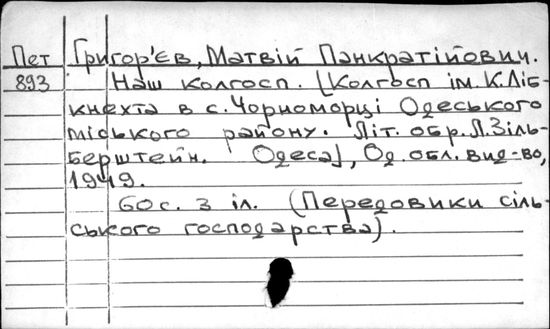 Пет Григор'єв, Матвій Панкратійович.
893 Наш колгосп. [Колгосп ім. К. Ліб-
кнехта в с. Чорноморці Одеського
міського району. Літ. обр. Л. Зіль-
берштейн. Одеса], Од. обл. вид-во,
1949.
60 с. з іл. (Передовики сіль-
ського господарства).